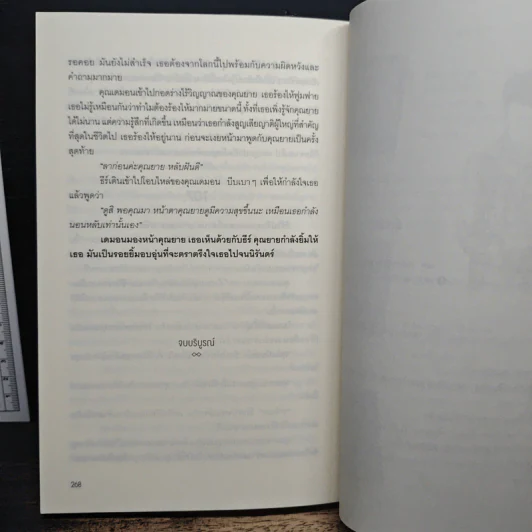 รอคอย มันยังไม่สำเร็จ เธอต้องจากโลกนี้ไปพร้อมกับความผิดหวังและ
คำถามมากมาย
คุณเดมอนเข้าไปกอดร่างไร้วิญญาณของคุณยาย เธอร้องไห้ฟูมฟาย
เธอไม่รู้เหมือนกันว่าทำไมต้องร้องไห้มากมายขนาดนี้ ทั้งที่เธอเพิ่งรู้จักคุณยาย
ได้ไม่นาน แต่ความรู้สึกที่เกิดขึ้น เหมือนว่าเธอกำลังสูญเสียญาติผู้ใหญ่ที่สำคัญ
ที่สุดในชีวิตไป เธอร้องไห้อยู่นาน ก่อนจะเงยหน้ามาพูดกับคุณยายเป็นครั้ง
สุดท้าย
“ลาก่อนค่ะคุณยาย หลับฝันดี”
ธีร์เดินเข้าไปโอบไหล่ของคุณเดมอน บีบเบาๆ เพื่อให้กำลังใจเธอ
แล้วพูดว่า
“ดูสิ พอคุณมา หน้าตาคุณยายดูมีความสุขขึ้นนะ เหมือนเธอกำลัง
นอนหลับเท่านั้นเอง”
เดมอนมองหน้าคุณยาย เธอเห็นด้วยกับธีร์ คุณยายกำลังยิ้มให้
เธอ มันเป็นรอยยิ้มอบอุ่นที่จะตราตรึงใจเธอไปจนนิรันดร์
จบบริบูรณ์
268